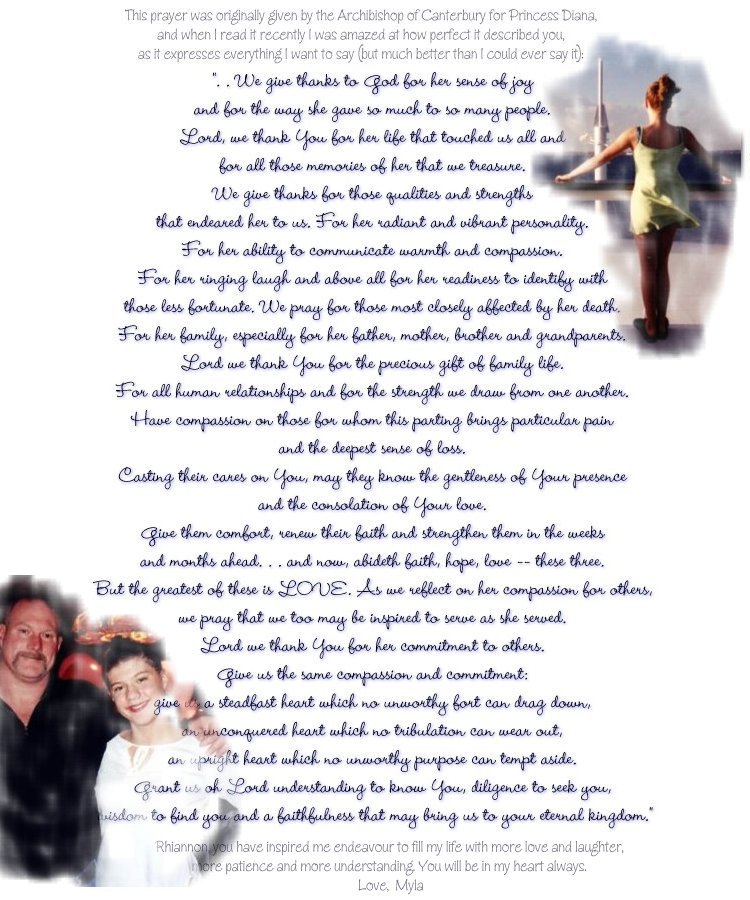 This prayer was originally given by the Archibishop of Canterbury for Princess Diana,
and when I read it recently I was amazed at how perfect it described you,
as it expresses everything I want to say (but much better than I could ever say it):
". . We give thanks to God for her sense of joy
and for the way she gave so much to so many people.
Lord, we thank You for her life that touched us all and
for all those memories of her that we treasure.
We give thanks for those qualities and strengths
that endeared her to us. For her radiant and vibrant personality.
For her ability to communicate warmth and compassion.
For her ringing laugh and above all for her readiness to identify with
those less fortunate. We pray for those most closely affected by her death.
For her family, especially for her father, mother, brother and grandparents.
Lord we thank You for the precious gift of family life.
For all human relationships and for the strength we draw from one another.
Have compassion on those for whom this parting brings particular pain
and the deepest sense of loss.
Casting their cares on You, may they know the gentleness of Your presence
and the consolation of Your love.
Give them comfort, renew their faith and strengthen them in the weeks
and months ahead. . . and now, abideth faith, hope, love -- these three.
But the greatest of these is LOVE. As we reflect on her compassion for others,
we pray that we too may be inspired to serve as she served.
Lord we thank You for her commitment to others.
Give us the same compassion and commitment:
give us a steadfast heart which no unworthy fort can drag down,
an unconquered heart which no tribulation can wear out,
an upright heart which no unworthy purpose can tempt aside.
Grant us oh Lord understanding to know You, diligence to seek you,
wisdom to find you and a faithfulness that may bring us to your eternal kingdom."
Rhiannon, you have inspired me endeavour to fill my life with more love and laughter,
more patience and more understanding. You will be in my heart always.
Love, Myla